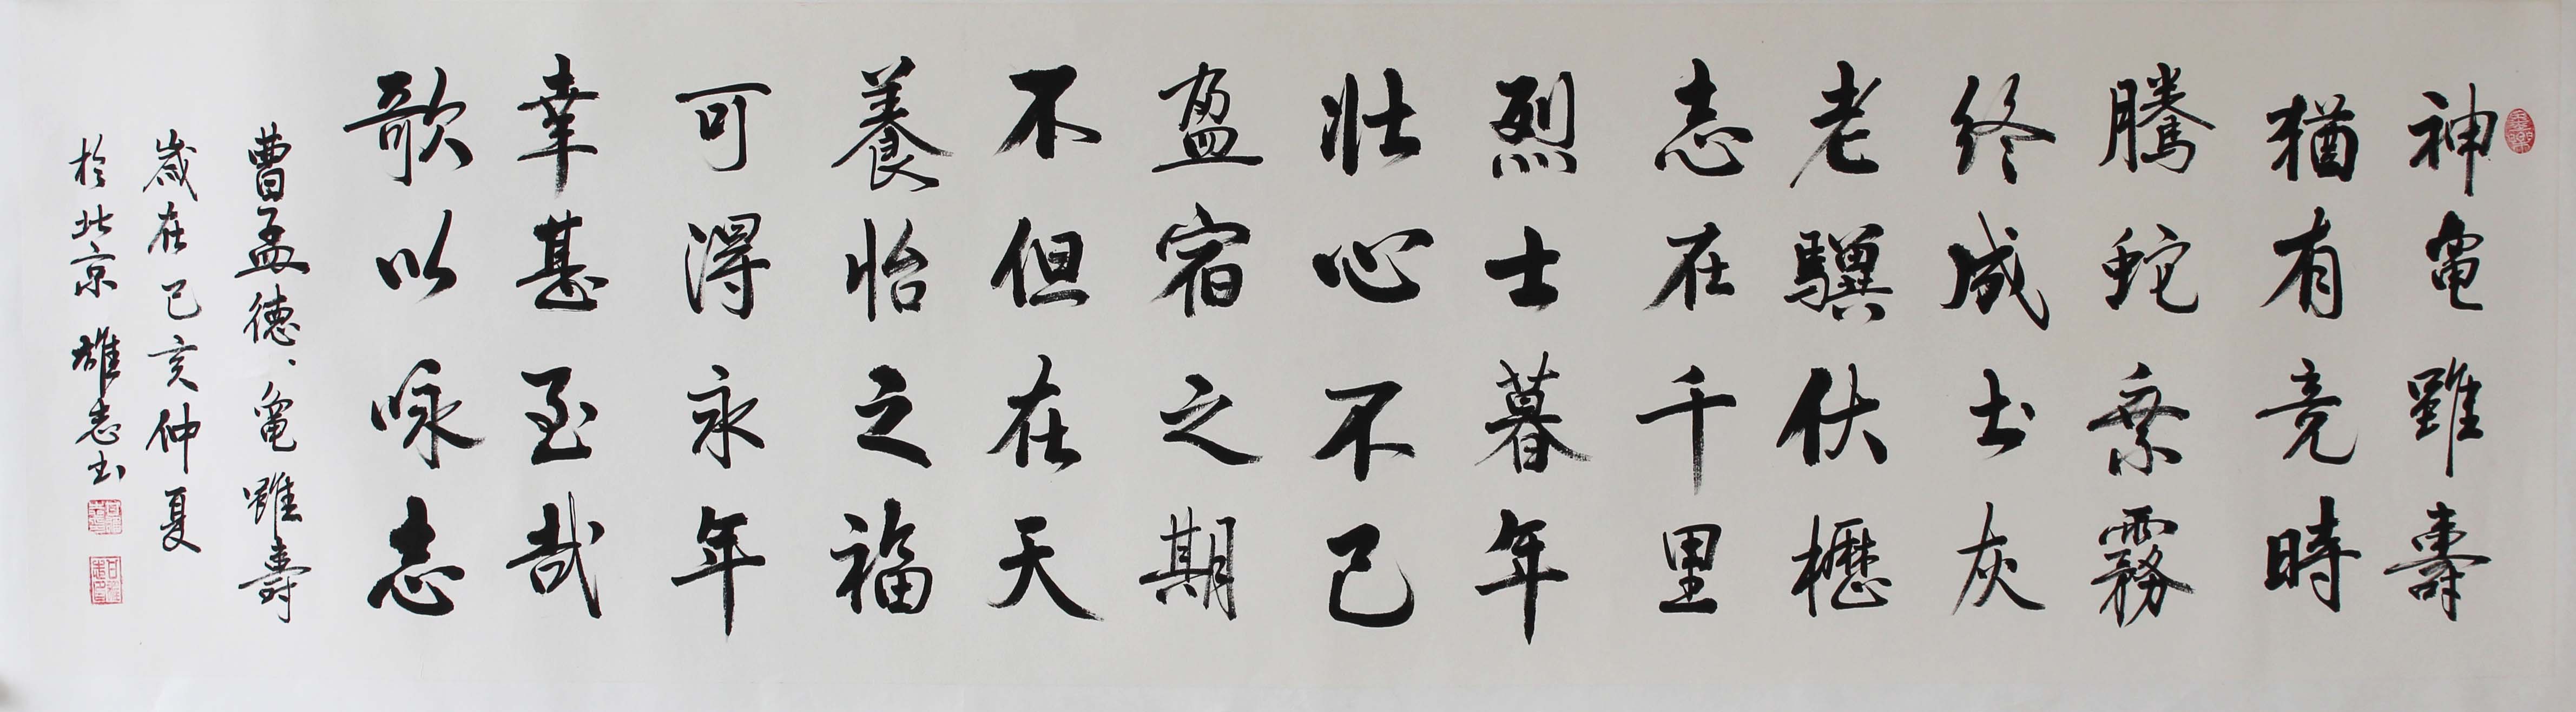 神龜雖壽
猶有竟時
騰蛇乘霧
終成土灰
老驥伏櫪
志在千里
烈士暮年
壯心不已
盈宿之期
不但在天
養怡之福
可得永年
幸甚至哉
歌以咏志
曹孟德、龜雖壽
歲在己亥仲夏
於北京 雄志书